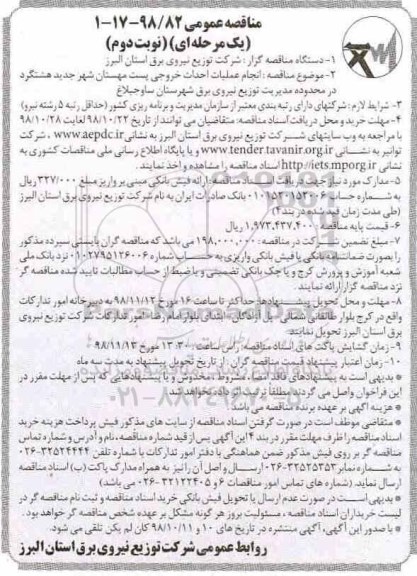 مناقصه عمومی ۹۸/۸۲-۱۷-۱
(یک مرحله ای) (نوبت دوم)
۱- دستگاه مناقصه گزار : شرکت توزیع نیروی برق استان البرز
۲- موضوع مناقصه : انجام عملیات احداث خروجی پست مهستان شهر جدید هشتگرد
در محدوده مدیریت توزیع نیروی برق شهرستان ساوجبلاغ
۳- شرایط لازم :شرکتهای دارای رتبه بندی معتبر از سازمان مدیریت و برنامه ریزی کشور (حداقل رتبه ۵ رشته نیرو)
۴-مهلت خرید و محل دریافت اسناد مناقصه: متقاضیان می توانند از تاریخ ۹۸/۱۰/۲۲ لغایت ۹۸/۱۰/۲۸
با مراجعه به وب سایتهای شرکت توزیع نیروی برق استان البرز به نشانی www.aepdc.ir ، شرکت
توانیر به نشانی www.tender.tavanir.org.ir و یا پایگاه اطلاع رسانی ملی مناقصات کشوری به
نشانی http://iets.mporg.ir اسناد مناقصه را مشاهده و اخذ نمایند .
۵- مدارک مورد نیاز جهت دریافت اسناد مناقصه:ارائه فیش بانکی مبنی بر واریز مبلغ ۳۲۷/۰۰۰ ریال
به شماره حساب بانک صادرات ایران به نام شرکت توزیع نیروی برق استان البرز
(طی مدت زمان قید شده در بند ۴)
۶- قیمت پایه مناقصه : ۱,۹۷۳,۴۳۷,۴۰۰ ریال
۷- مبلغ تضمین شرکت در مناقصه : ۱۹۸,۰۰۰,۰۰۰ می باشد که مناقصه گران بایستی سپرده مذکور
را بصورت ضمانتنامه بانکی یا فیش بانکی واریزی به حساب شماره ۰۱۰۲۷۹۵۱۲۶۰۰۶ نزد بانک ملی
شعبه آموزش و پرورش کرج و یا چک بانکی تضمینی و یا ضبط از حساب مطالبات تایید شده مناقصه گر
نزد مناقصه گزار ارائه نمایند .
۸- مهلت و محل تحویل پیشنهادها: حداکثر تا ساعت ۱۶ مورخ ۹۸/۱۱/۱۲ به دبیرخانه امور تدارکات
واقع در کرج بلوار طالقانی شمالی - پل آزادگان - ابتدای بلوار امام رضا- امور تدارکات شرکت توزیع نیروی
برق استان البرز تحویل نمایند
۹- زمان گشایش پاکت های اسناد مناقصه : راس ساعت ۱۳:۳۰ مورخ ۹۸/۱۱/۱۳
۱۰- زمان اعتبار پیشنهاد قیمت مناقصه گران: از تاریخ تحویل پیشنهاد به مدت سه ماه
* بدیهی است به پیشنهادهای فاقد امضاء، مشروط ، مخدوش و یا پیشنهادهایی که پس از مهلت مقرر در
این فراخوان واصل می گردند مطلقاً ترتیب اثر داده نخواهد شد.
* هزینه آگهی بر عهده برنده مناقصه می باشد
* متقاضی موظف است در صورت گرفتن اسناد مناقصه از سایت های مذکور فیش پرداخت هزینه خرید
اسناد مناقصه را ظرف مهلت مقرر در بند ۴ این آگهی پس از قید شماره مناقصه، نام و آدرس و شماره تماس
مناقصه گر بر روی فیش مذکور ضمن هماهنگی با دفتر امور تدارکات با شماره تلفن ۳۲۵۲۴۴۴۴-۰۲۶
به شماره نمابر ۳۲۵۲۵۳۵۳-۰۲۶ ارسال و اصل آن را نیز به همراه مدارک پاکت (ب) اسناد مناقصه
ارسال نماید. (شماره های تماس امور مناقصات ۶ و ۳۲۱۲۲۴۰۵-۰۲۶ می باشد)
* بدیهی است در صورت عدم ارسال یا تحویل فیش بانکی خرید اسناد مناقصه و ثبت نام مناقصه گر در
لیست خریداران اسناد مناقصه ، مسئولیت بروز هر گونه مشکل بر عهده شخص مناقصه گر خواهد بود.
* با صدور این آگهی، آگهی منتشره در تاریخ های ۱۰ و ۹۸/۱۰/۱۱ کان لم یکن تلقی می شود.
روابط عمومی شرکت توزیع نیروی برق استان البرز